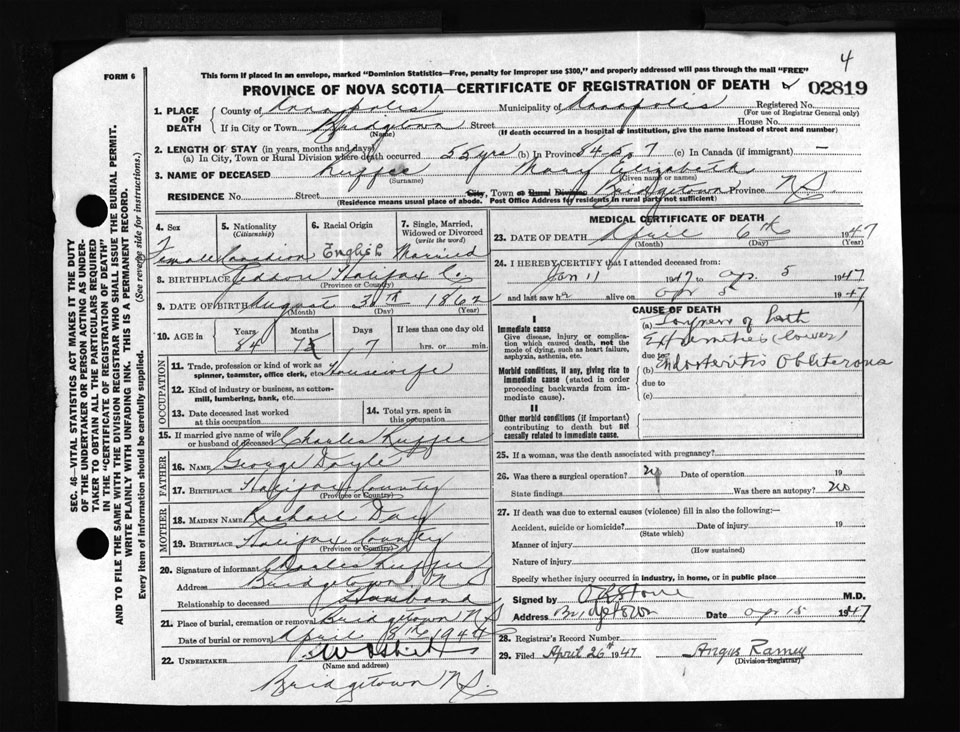 4
FORM 6
This form if placed in an envelope, marked "Dominion Statistics—Free, penalty for improper use $300," and properly addressed will pass through the mail "FREE"
PROVINCE OF NOVA SCOTIA—CERTIFICATE OF REGISTRATION OF DEATH 02819
1. PLACE OF DEATH
County of Annapolis Municipality of Annapolis Registered No.
(For use of Registrar General only)
If in City or Town Bridgetown Street House No.
(Name) (If death occurred in a hospital or institution, give the name instead of street and number)
2. LENGTH OF STAY (in years, months and days)
(a) In City, Town or Rural Division where death occurred 55 yrs (b) In Province 84 7 (c) In Canada (if immigrant) —
3. NAME OF DECEASED Mary Elizabeth
(Surname) (Given name or names)
RESIDENCE No. Street City, Town or Rural Division Bridgetown Province N.S.
(Residence means usual place of abode. Post Office Address for residents in rural parts not sufficient)
4. Sex 5. Nationality 6. Racial Origin 7. Single, Married, Widowed or Divorced
(Citizenship) (write the word)
Female Canadian English Married
8. BIRTHPLACE Jeddore Halifax Co.
(Province or Country)
9. DATE OF BIRTH August 30th 1862
(Month) (Day) (Year)
10. AGE Years Months Days If less than one day old
84 7 7 hrs. or min.
OCCUPATION
11. Trade, profession or kind of work as spinner, teamster, office clerk, etc. Housewife
12. Kind of industry or business, as cotton-mill, lumbering, bank, etc.
13. Date deceased last worked at this occupation
14. Total yrs. spent in this occupation
15. If married give name of wife or husband of deceased Charles
FATHER
16. NAME George Doyle
17. BIRTHPLACE Halifax County
(Province or Country)
MOTHER
18. MAIDEN NAME Rachael Day
19. BIRTHPLACE Halifax County
(Province or Country)
20. Signature of informant Charles
Address Bridgetown N S
Relationship to deceased Husband
21. Place of burial, cremation or removal Bridgetown N.S.
Date of burial or removal April 8th 1944
22. UNDERTAKER
(Name and address)
Bridgetown N.S.
MEDICAL CERTIFICATE OF DEATH
23. DATE OF DEATH April 6th 1947
(Month) (Day) (Year)
24. I HEREBY CERTIFY that I attended deceased from:
Jan 11 1947 to Apr. 5 1947
and last saw her alive on Apr 5 1947
CAUSE OF DEATH
I
Immediate cause
Give disease, injury or complication which caused death, not the mode of dying, such as heart failure, asphyxia, asthenia, etc.
(a) Gangrene of both
Extremities (lower)
due to
Morbid conditions, if any, giving rise to immediate cause (stated in order proceeding backwards from immediate cause).
(b) Endarteritis Obliterans
due to
(c)
II
Other morbid conditions (if important) contributing to death but not causally related to immediate cause.
25. If a woman, was the death associated with pregnancy?
26. Was there a surgical operation? no Date of operation 19
State findings Was there an autopsy? no
27. If death was due to external causes (violence) fill in also the following:—
Accident, suicide or homicide? Date of injury 19
(State which)
Manner of injury
(How sustained)
Nature of injury
Specify whether injury occurred in industry, in home, or in public place
Signed by M.D.
Address Bridgetown Date Apr 15 1947
28. Registrar's Record Number
29. Filed April 26th 1947 Angus Ramey
(Division Registrar)
SEC. 46—VITAL STATISTICS ACT MAKES IT THE DUTY
OF THE UNDERTAKER OR PERSON ACTING AS UNDER-
TAKER TO OBTAIN ALL THE PARTICULARS REQUIRED
IN THE "CERTIFICATE OF REGISTRATION OF DEATH"
AND TO FILE THE SAME WITH THE DIVISION REGISTRAR WHO SHALL ISSUE THE BURIAL PERMIT.
WRITE PLAINLY WITH UNFADING INK. THIS IS A PERMANENT RECORD.
Every item of information should be carefully supplied. (See reverse side for instructions.)